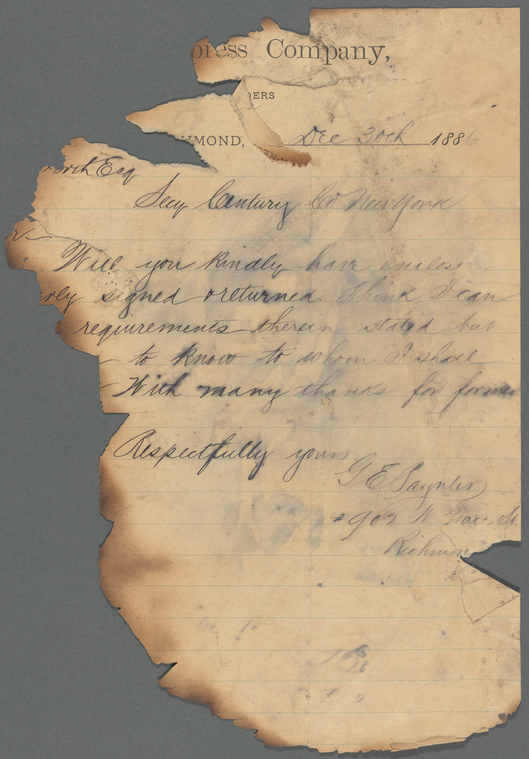 press Company,
DERS
MOND, Dec 30th 1886
worth Esq
Secy Century Co New York
Will you kindly have enclos
rly signed & returned. Think I can
requirements therein stated but
to know to whom I shall
With many thanks for former
Respectfully yours
G E
#902 W Grace St.
Richmon